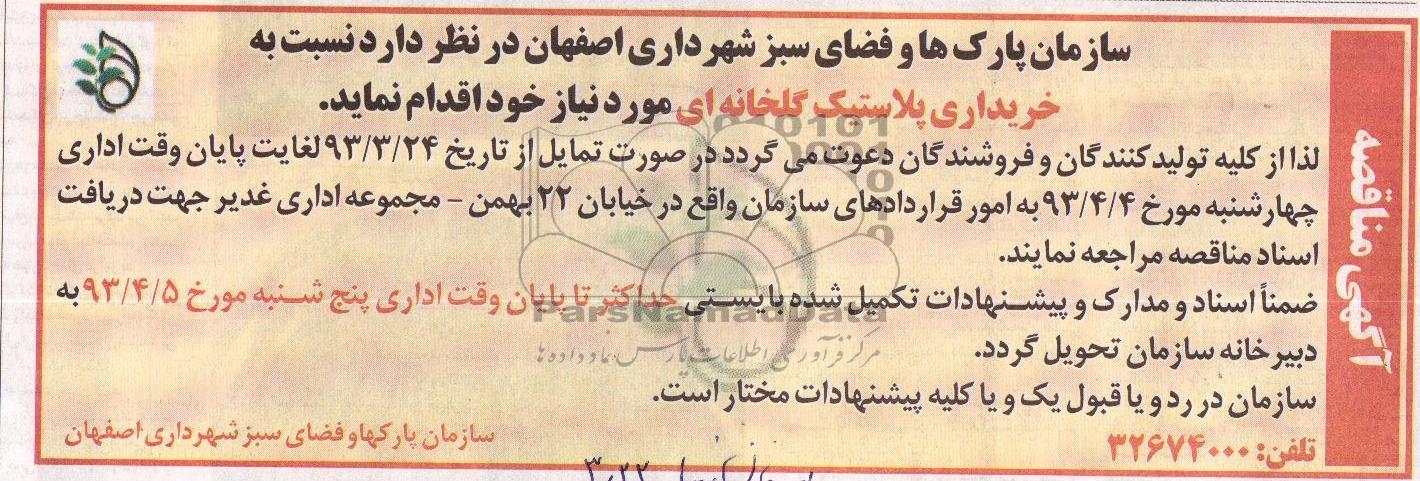 آگهی مناقصه
سازمان پارک ها و فضای سبز شهرداری اصفهان در نظر دارد نسبت به
خریداری پلاستیک گلخانه ای مورد نیاز خود اقدام نماید.
لذا از کلیه تولیدکنندگان و فروشندگان دعوت می گردد در صورت تمایل از تاریخ ۹۳/۳/۲۴ لغایت پایان وقت اداری
چهارشنبه مورخ ۹۳/۴/۴ به امور قراردادهای سازمان واقع در خیابان ۲۲ بهمن - مجموعه اداری غدیر جهت دریافت
اسناد مناقصه مراجعه نمایند.
ضمناً اسناد و مدارک و پیشنهادات تکمیل شده بایستی حداکثر تا پایان وقت اداری پنج شنبه مورخ ۹۳/۴/۵ به
ParsNamadData
مرکز فرآوری اطلاعات پارس نماد داده ها
دبیرخانه سازمان تحویل گردد.
سازمان در رد و یا قبول یک و یا کلیه پیشنهادات مختار است.
تلفن: ۳۲۶۷۴۰۰۰
سازمان پارکها و فضای سبز شهرداری اصفهان